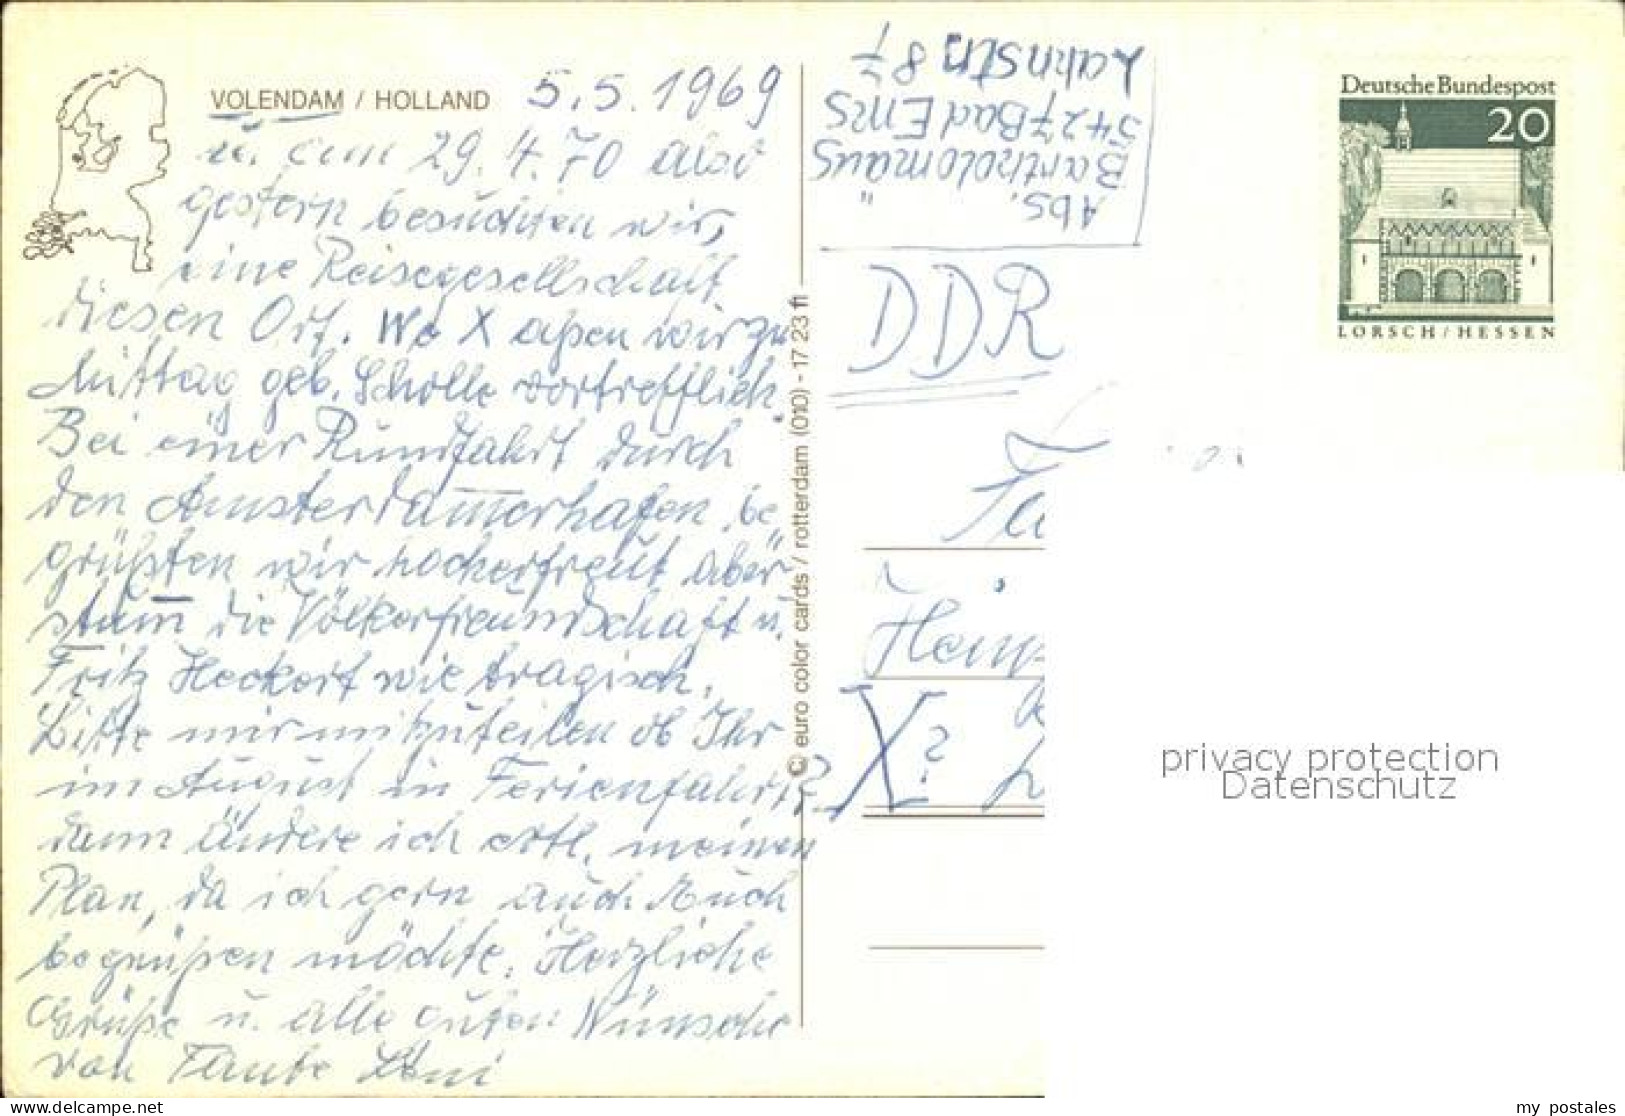 VOLENDAM / HOLLAND 5.5.1969
u. am 29.4.70 also
gestern besuchten wir,
eine Reisegesellschaft
diesen Ort. Wo X aßen wir zu
Mittag geb. Scholle vortrefflich.
Bei einer Rundfahrt durch
den Amsterdamerhafen be,,
grüßten wir hocherfreut aber
stumm die Völkerfreundschaft u.
Fritz Heckert wie tragisch.
Bitte mir mitzuteilen ob Ihr
im August in Ferienfahrt?
dann ändere ich evtl. meinen
Plan, da ich gern auch Euch
begrüßen möchte. Herzliche
Grüße u. alle guten Wünsche
von Tante
© euro color cards / rotterdam (010) - 17 23 11
Abs.
Bartholomäus
5427 Bad Ems
Lahnstr. 87
DDR
X?
Deutsche Bundespost
20
LORSCH / HESSEN
privacy protection
Datenschutz
my postales